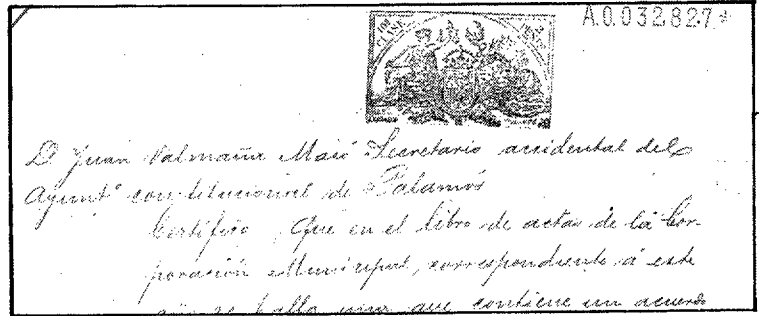 A.0.032.827*
10ª CLASE
2 PESETAS
D. Juan Valmaña Maió Secretario accidental del
Ayuntº constitucional de Palamós
Certifico, Que en el libro de actas de la Cor-
poración Municipal, correspondiente á este
año se halla una que contiene un acuerdo